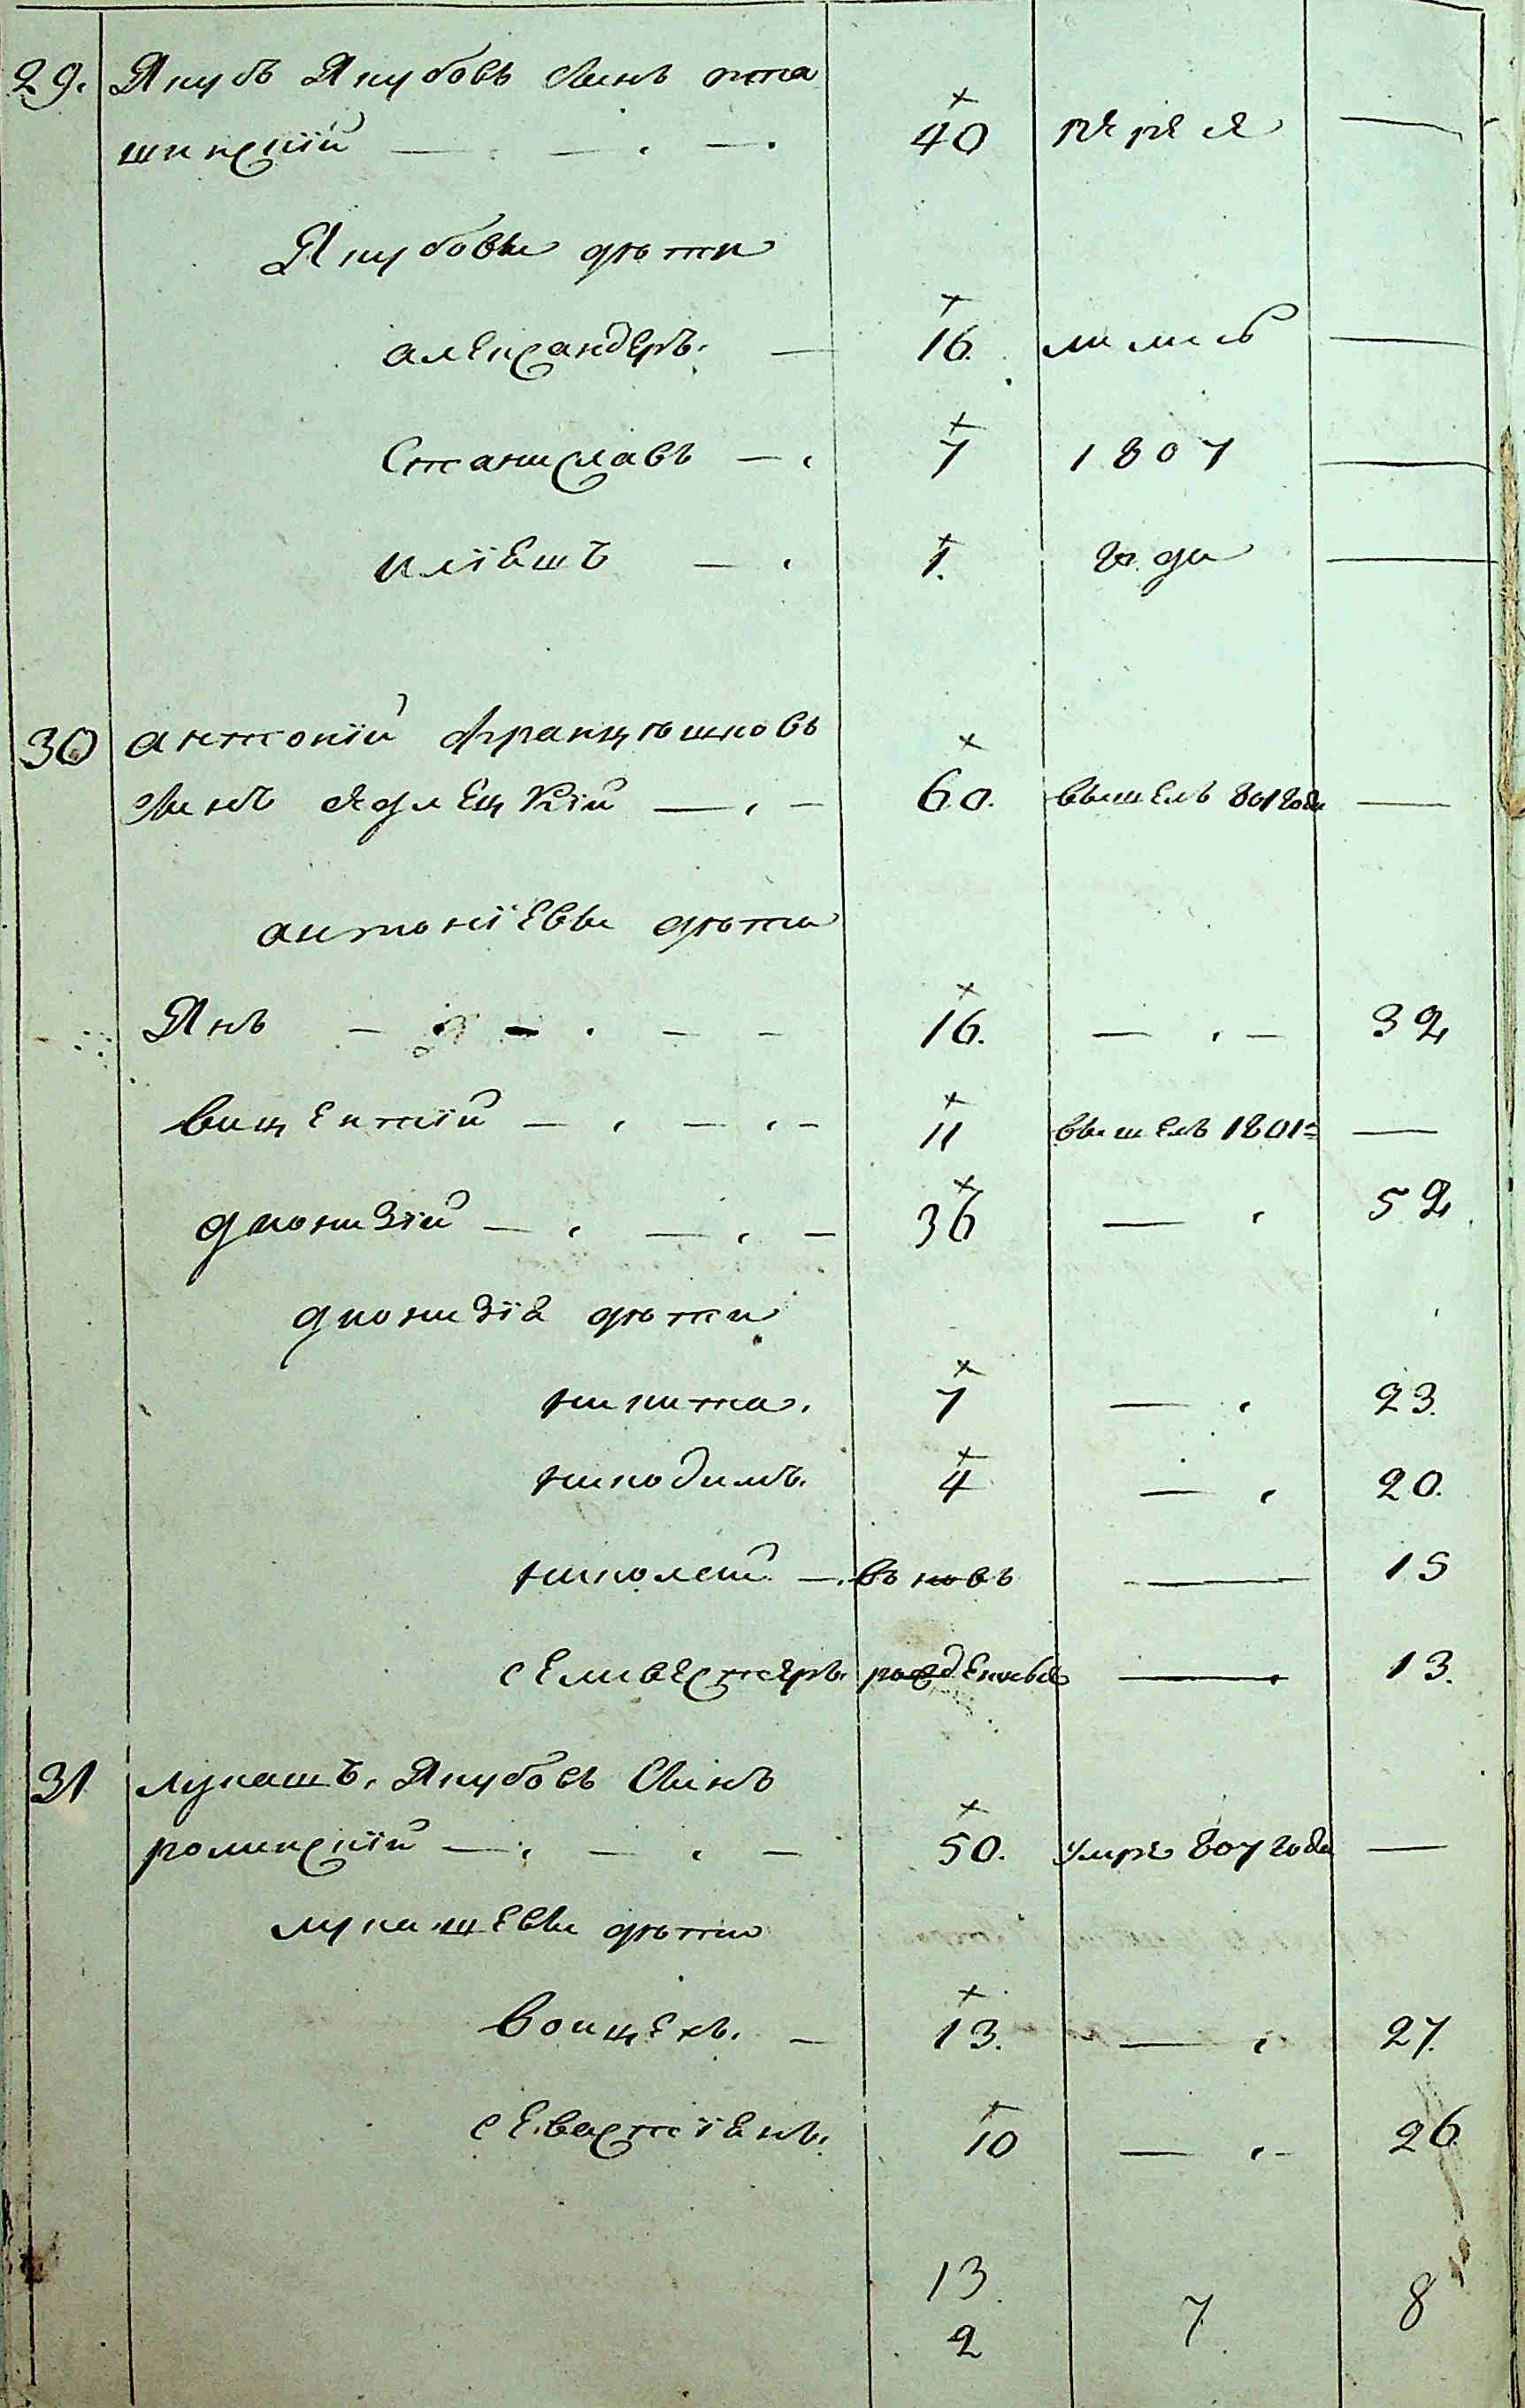 29. Якубъ Якубовъ сынъ ята
шинскій — . — . — . 40 пере се —
Якубовы дѣти
александеръ. — 16. лились —
Станиславъ — . 7 1807 —
иліяшъ — . 1. года —
30 антоній францѣшковъ
сынъ Ядлецкій — . — 60. вышелъ 801 года —
антоніевы дѣти
Янъ — . — . — — 16. — . — 32
вицентій — . — . — 11 вышелъ 1801г —
діонизій — . — . — 36 — . 52
діонизія дѣти
никита. 7 — . 23.
никодимъ. 4 — . 20.
николай. — вновь — 15
селивестеръ. рожденныя — 13.
31 лукашъ. Якубовъ Сынъ
роминскій — . — . — 50. умре 807 года —
лукашевы дѣти
воицехъ. — 13. — . 27.
севастіянъ. 10 — . — 26
13. 7 8
2